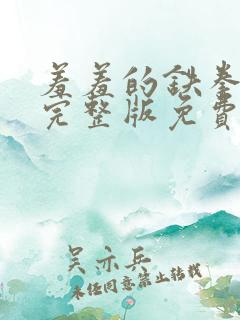 羞羞的鉄拳
完整版免費
吴亦兵
未经同意禁止转载